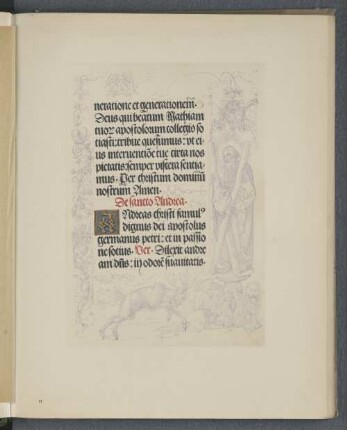 neratione et generationem̄.
Deus qui beatum Mathiam
tuoꝝ apostolorum collegio so
ciasti: tribue quesumus: vt ei
us interuentiōe tue circa nos
pietatis semper viscera sentia
mus. Per christum dominū
nostrum Amen.
De sancto Andrea.
Andreas christi famulꝰ
dignus dei apostolus
germanus petri: et in passiō
ne socius. Ver. Dilexit andre
am dn̄s: in odorē suauitatis.